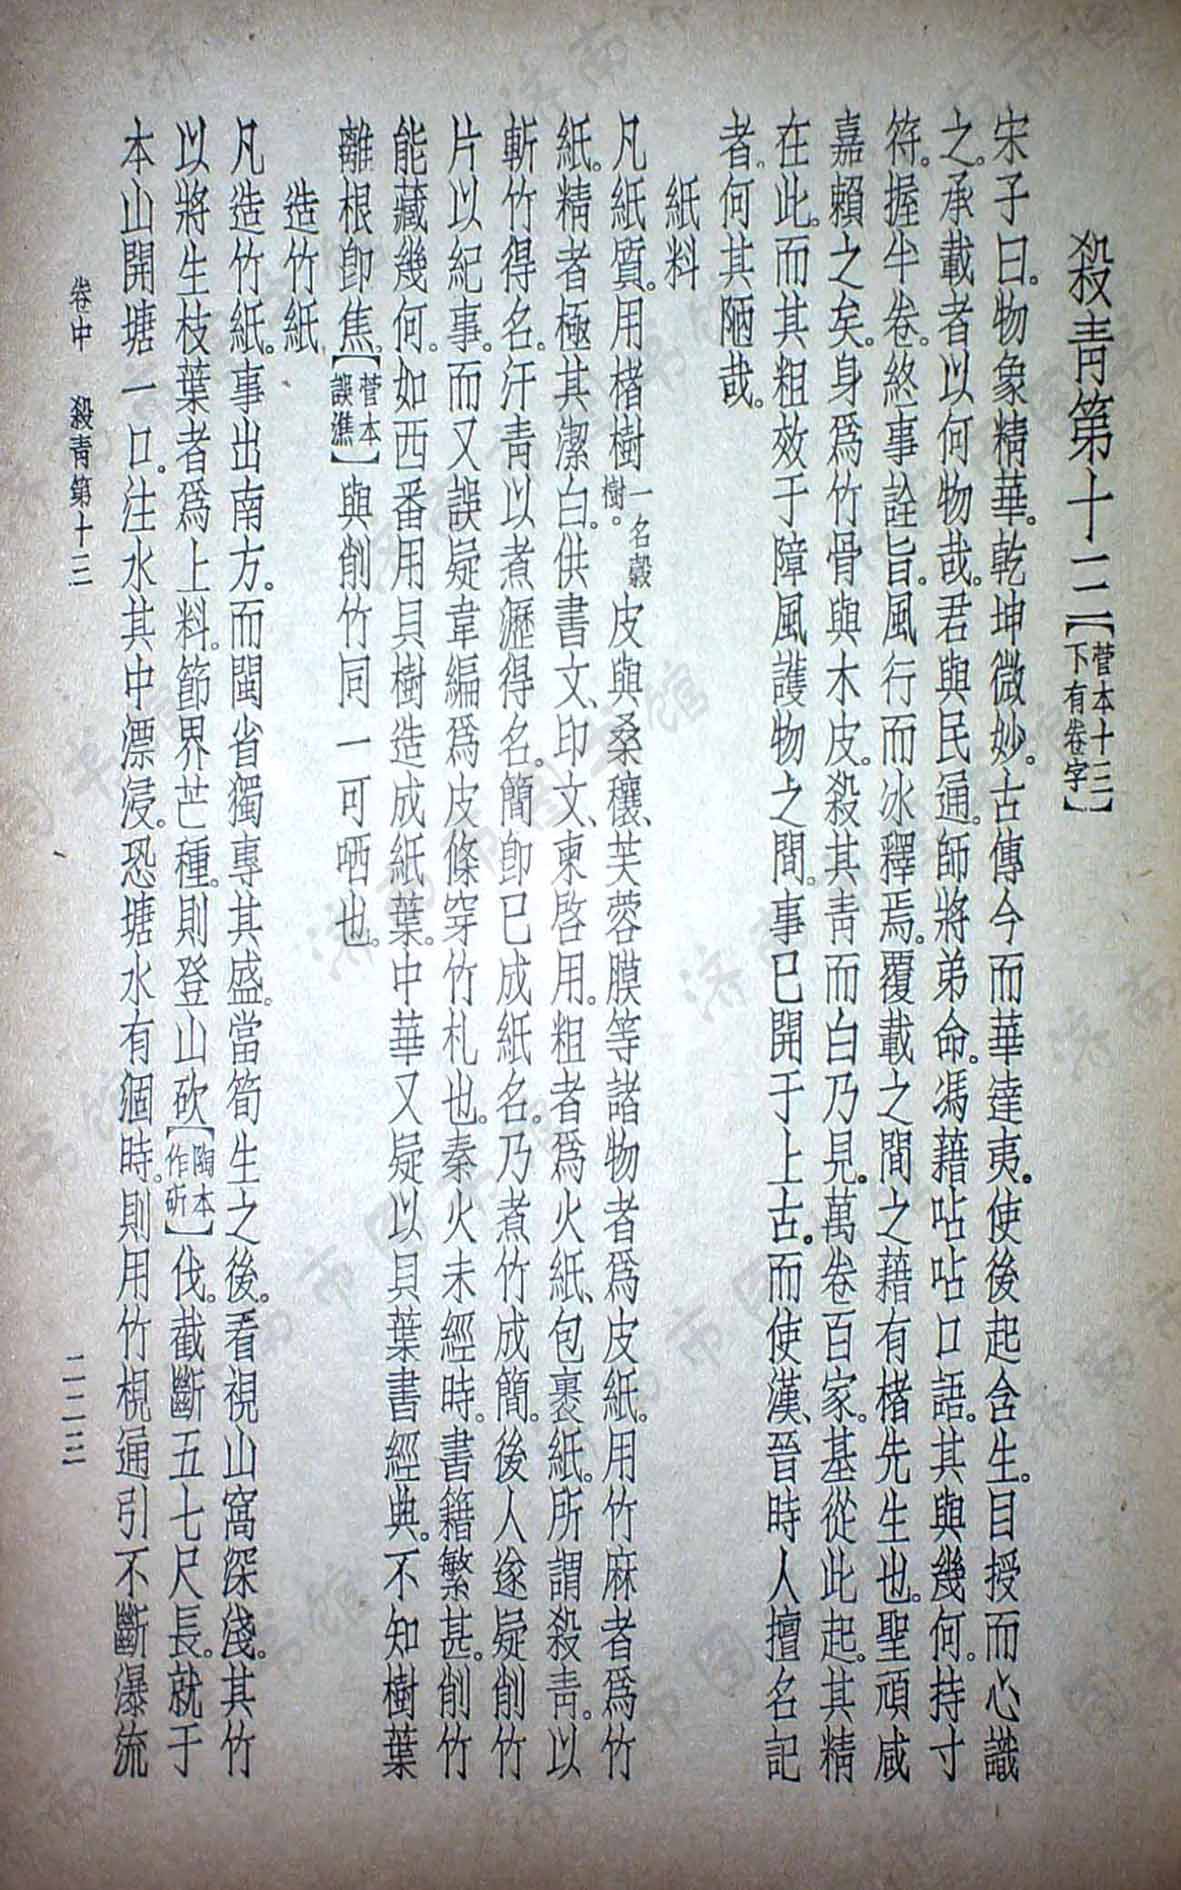 殺靑第十三【菅本十三下有卷字】
宋子曰。物象精華。乾坤微妙。古傳今而華達夷。使後起含生。目授而心識
之。承載者以何物哉。君與民通。師將弟命。馮藉呫呫口語。其與幾何。持寸
符。握半卷。終事詮旨。風行而冰釋焉。覆載之間之藉有楮先生也。聖頑咸
嘉賴之矣。身爲竹骨與木皮。殺其靑而白乃見。萬卷百家。基從此起。其精
在此。而其粗效于障風護物之間。事已開于上古。而使漢、晉時人擅名記
者。何其陋哉。
紙料
凡紙質。用楮樹一名穀樹。皮與桑穰、芙蓉膜等諸物者爲皮紙。用竹麻者爲竹
紙。精者極其潔白。供書文、印文、柬啓用。粗者爲火紙、包裹紙。所謂殺靑。以
斬竹得名。汗靑以煮瀝得名。簡卽已成紙名。乃煮竹成簡。後人遂疑削竹
片以紀事。而又誤疑韋編爲皮條穿竹札也。秦火未經時。書籍繁甚。削竹
能藏幾何。如西番用貝樹造成紙葉。中華又疑以貝葉書經典。不知樹葉
離根卽焦。【菅本誤進】與削竹同一可哂也。
造竹紙
凡造竹紙。事出南方。而閩省獨專其盛。當筍生之後。看視山窩深淺。其竹
以將生枝葉者爲上料。節界芒種。則登山砍【陶本作斫】伐。截斷五七尺長。就于
本山開塘一口。注水其中漂浸。恐塘水有個時。則用竹梘通引不斷瀑流
卷中 殺靑第十三
二二三